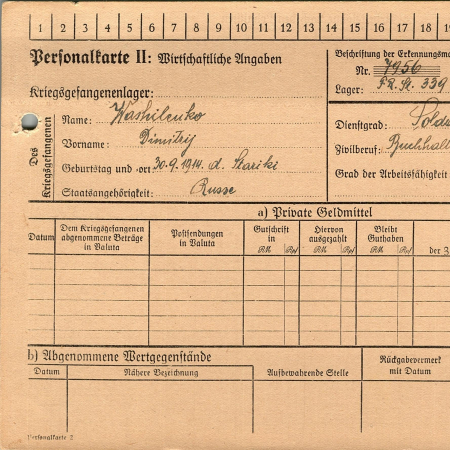 1 2 3 4 5 6 7 8 9 10 11 12 13 14 15 16 17 18 19
Personalkarte II: Wirtschaftliche Angaben
Beschriftung der Erkennungsma
Nr. 7956
Lager: FR. St. 339
Kriegsgefangenenlager:
Des Kriegsgefangenen
Name: Washilenko
Vorname: Dimitrij
Geburtstag und -ort 30.9.1914. d. Stariki
Staatsangehörigkeit: Russe
Dienstgrad: Solda
Zivilberuf: Buchhalt
Grad der Arbeitsfähigkeit
a) Private Geldmittel
Datum
Dem Kriegsgefangenen
abgenommene Beträge
in Valuta
Postsendungen
in Valuta
Gutschrift
in
RM Rpf
Hiervon
ausgezahlt
RM Rpf
Bleibt
Guthaben
RM Rpf
der
b) Abgenommene Wertgegenstände
Datum
Nähere Bezeichnung
Aufbewahrende Stelle
Rückgabevermerk
mit Datum
Personalkarte 2